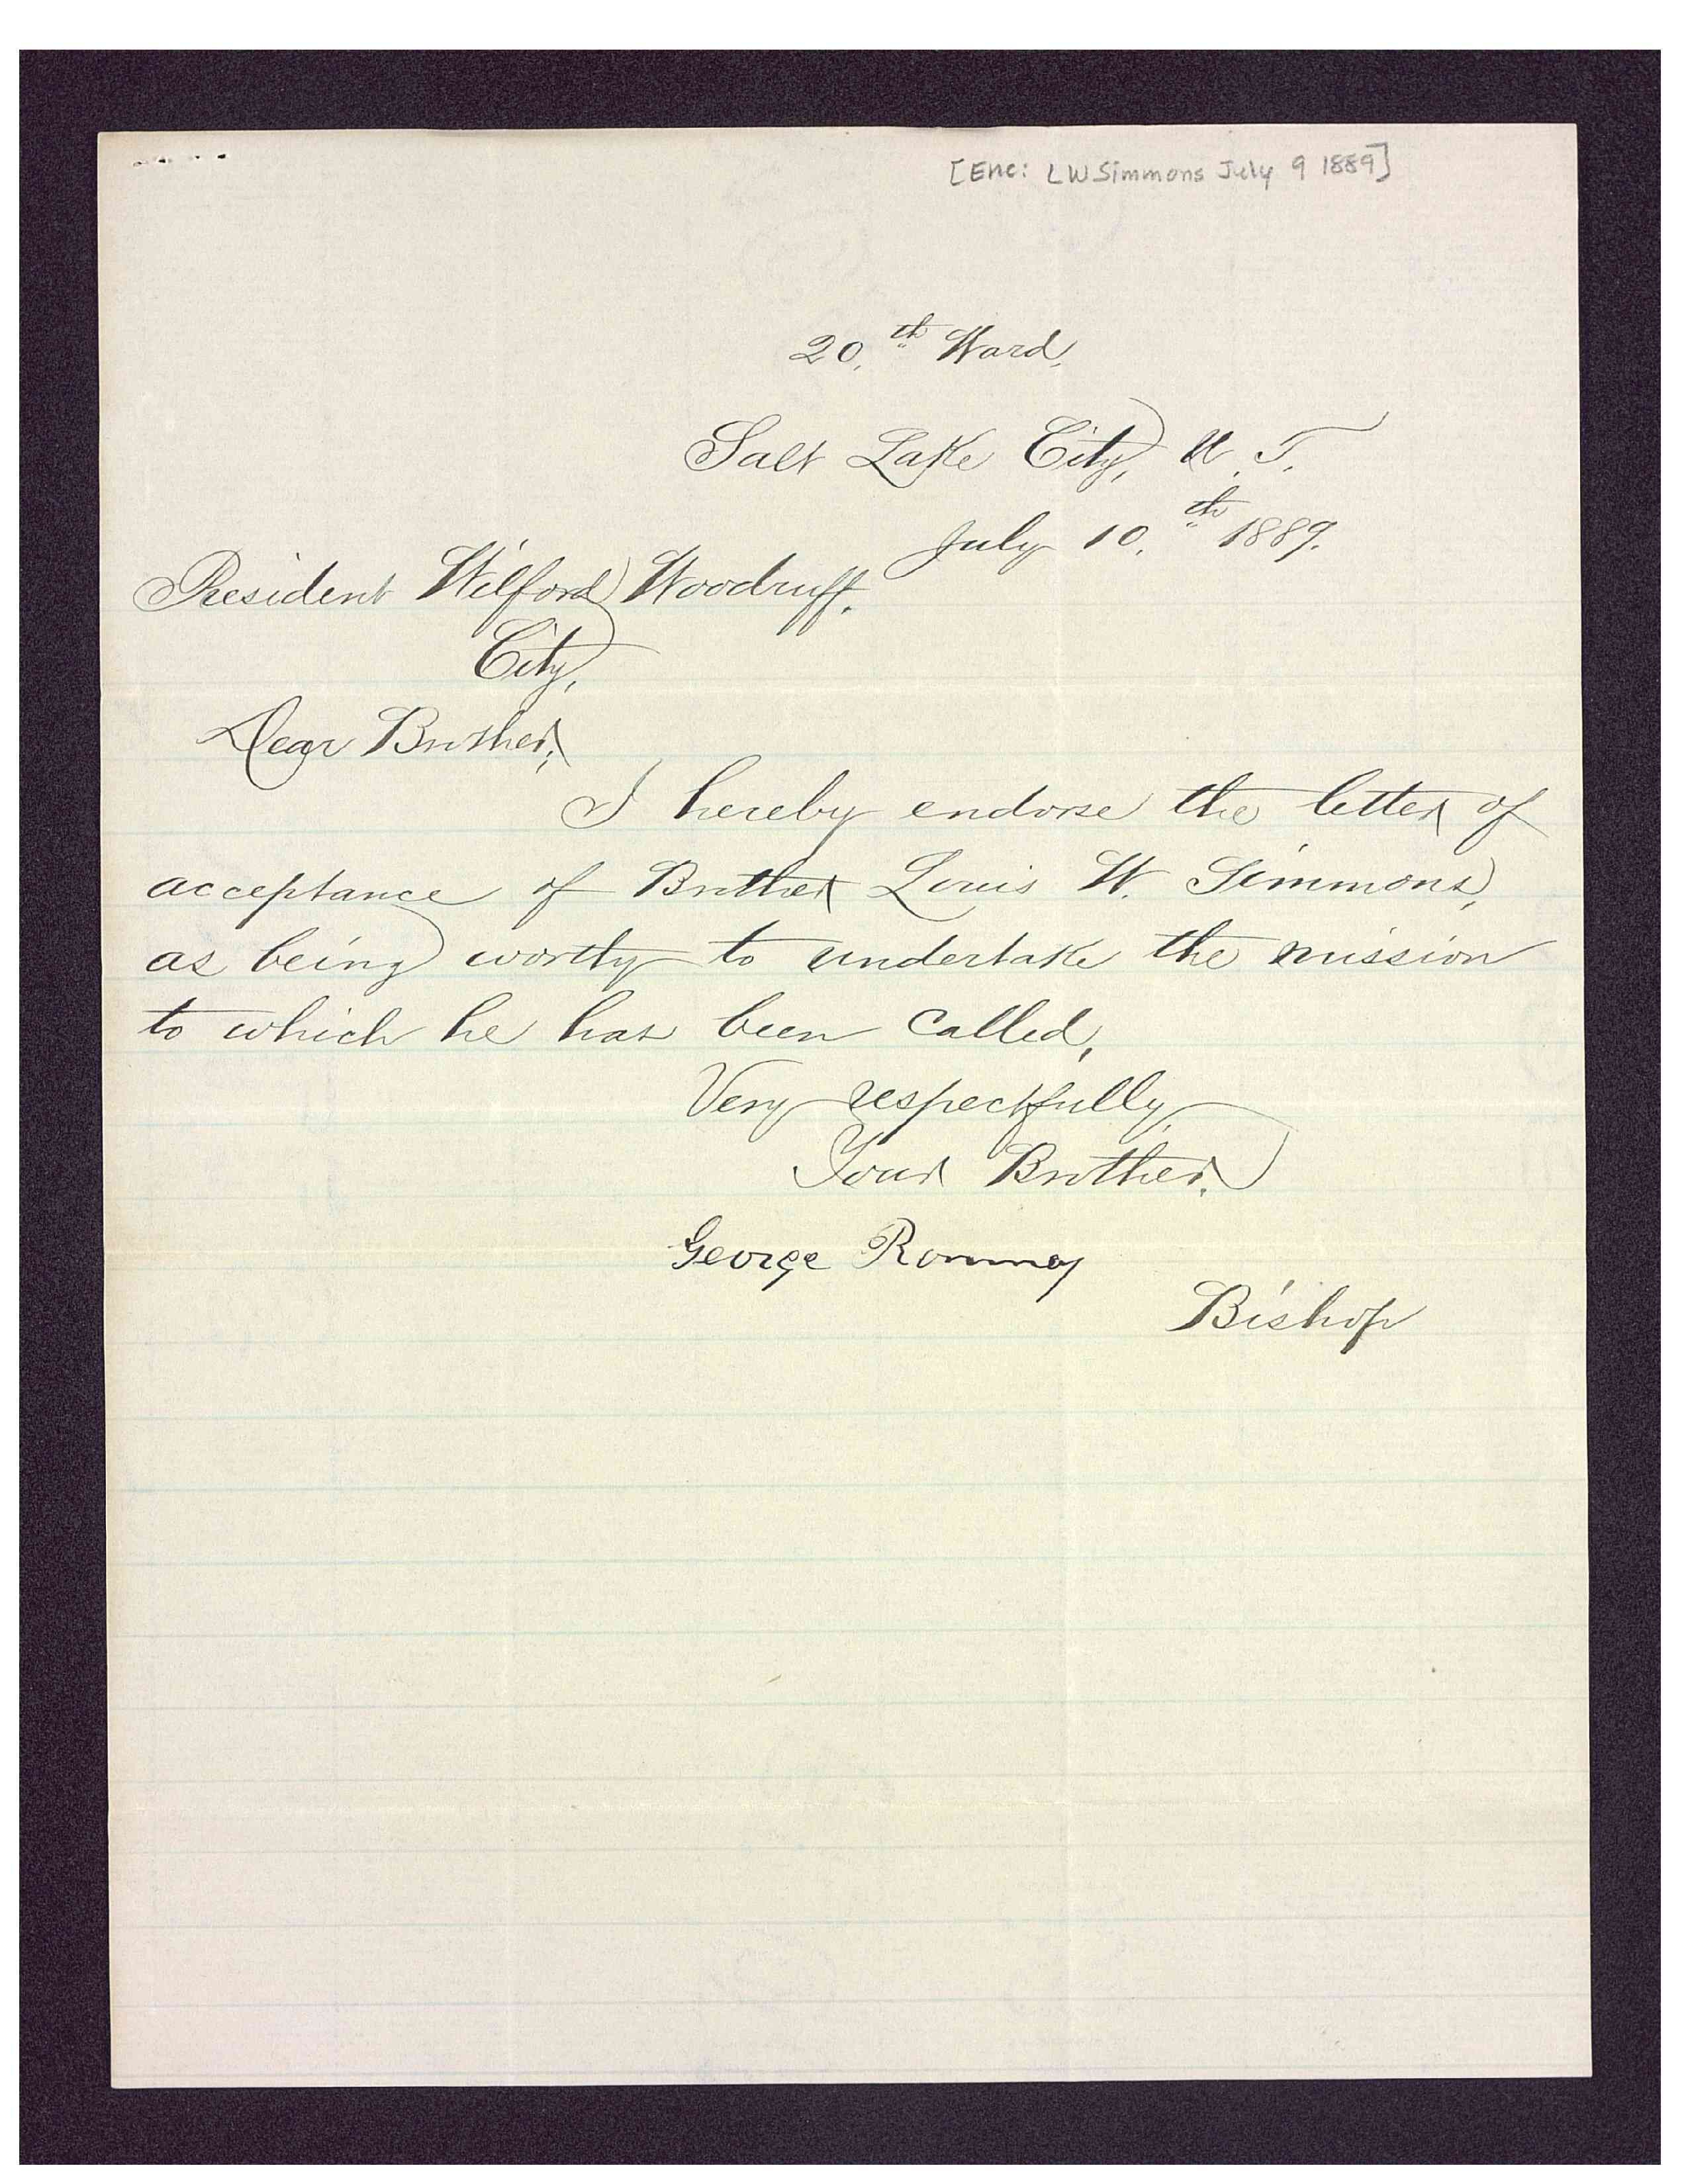 [Enc: LW Simmons July 9 1889]
20.th Ward,
Salt Lake City, U. T.
July 10.th 1889.
President Wilford Woodruff.
City,
Dear Brother,
I hereby endorse the letter of
acceptance of Brother Louis W. Simmons,
as being worthy to undertake the mission
to which he has been called,
Very respectfully
Your Brother.
George Romney
Bishop